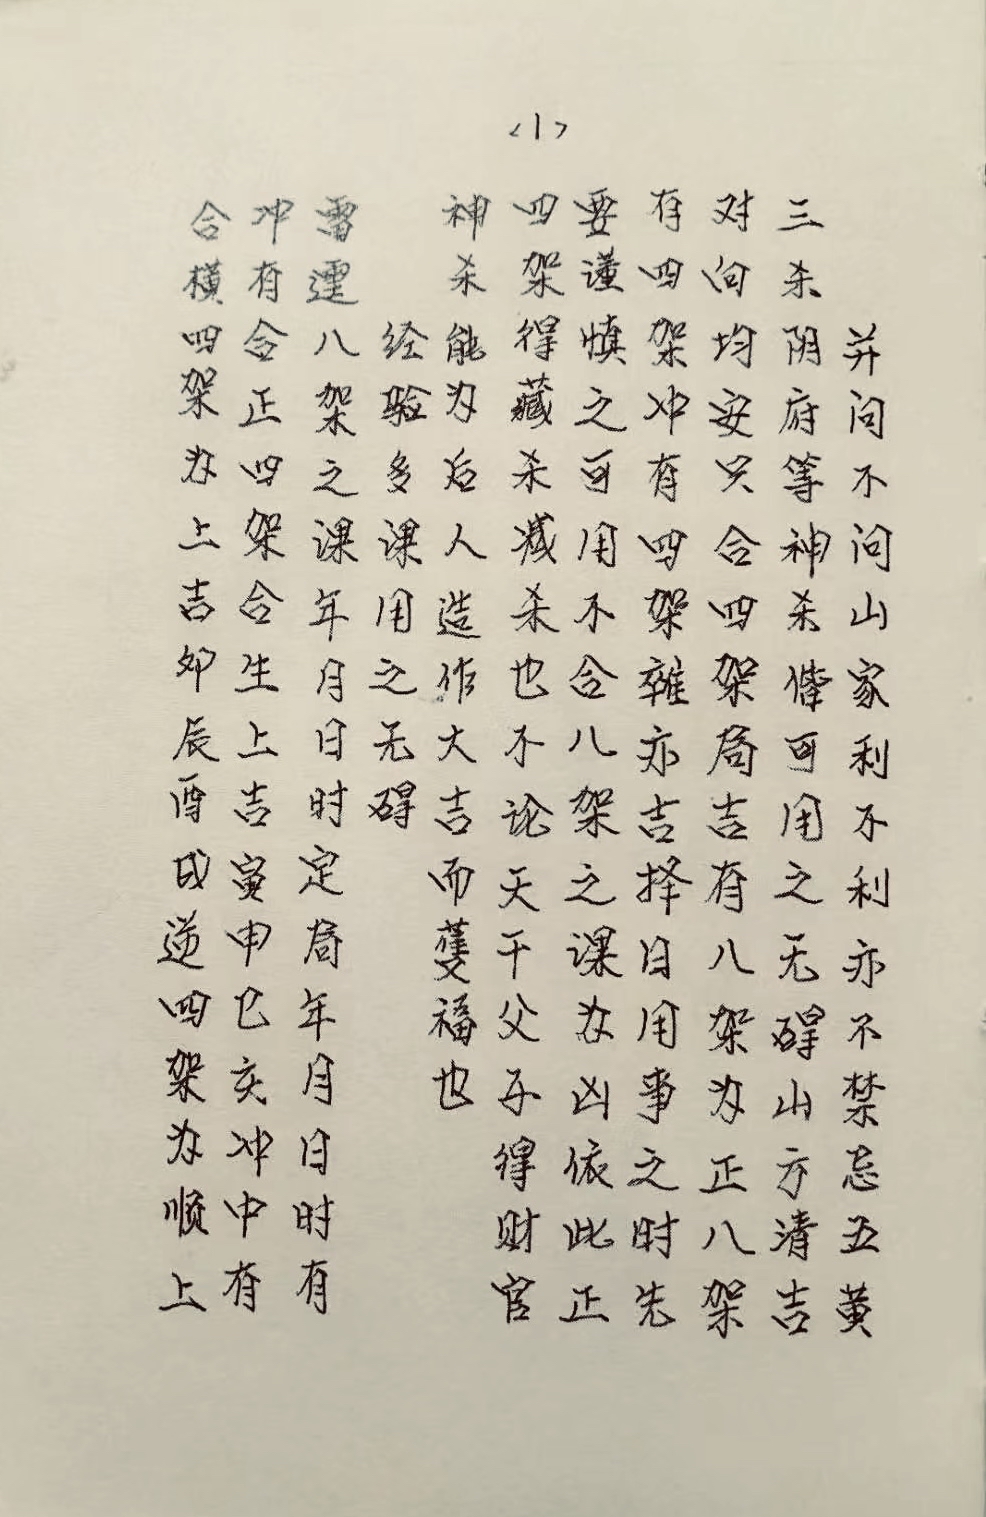 <1>
并问不问山家利不利亦不禁忌五黄
三杀阴府等神杀俸可用之无碍山方清吉
对向均安只合四架局吉有八架为正八架
有四架冲有四架雜亦吉择日用事之时先
要谨慎之可用不合八架之课为凶依此正
四架得藏杀减杀也不论天干父子得财官
神杀能为后人造作大吉而蒦福也
经验多课用之无碍
雷霆八架之课年月日时定局年月日时有
冲有合正四架合生上吉寅申巳亥冲中有
合横四架为上吉卯辰酉戌逆四架为顺上